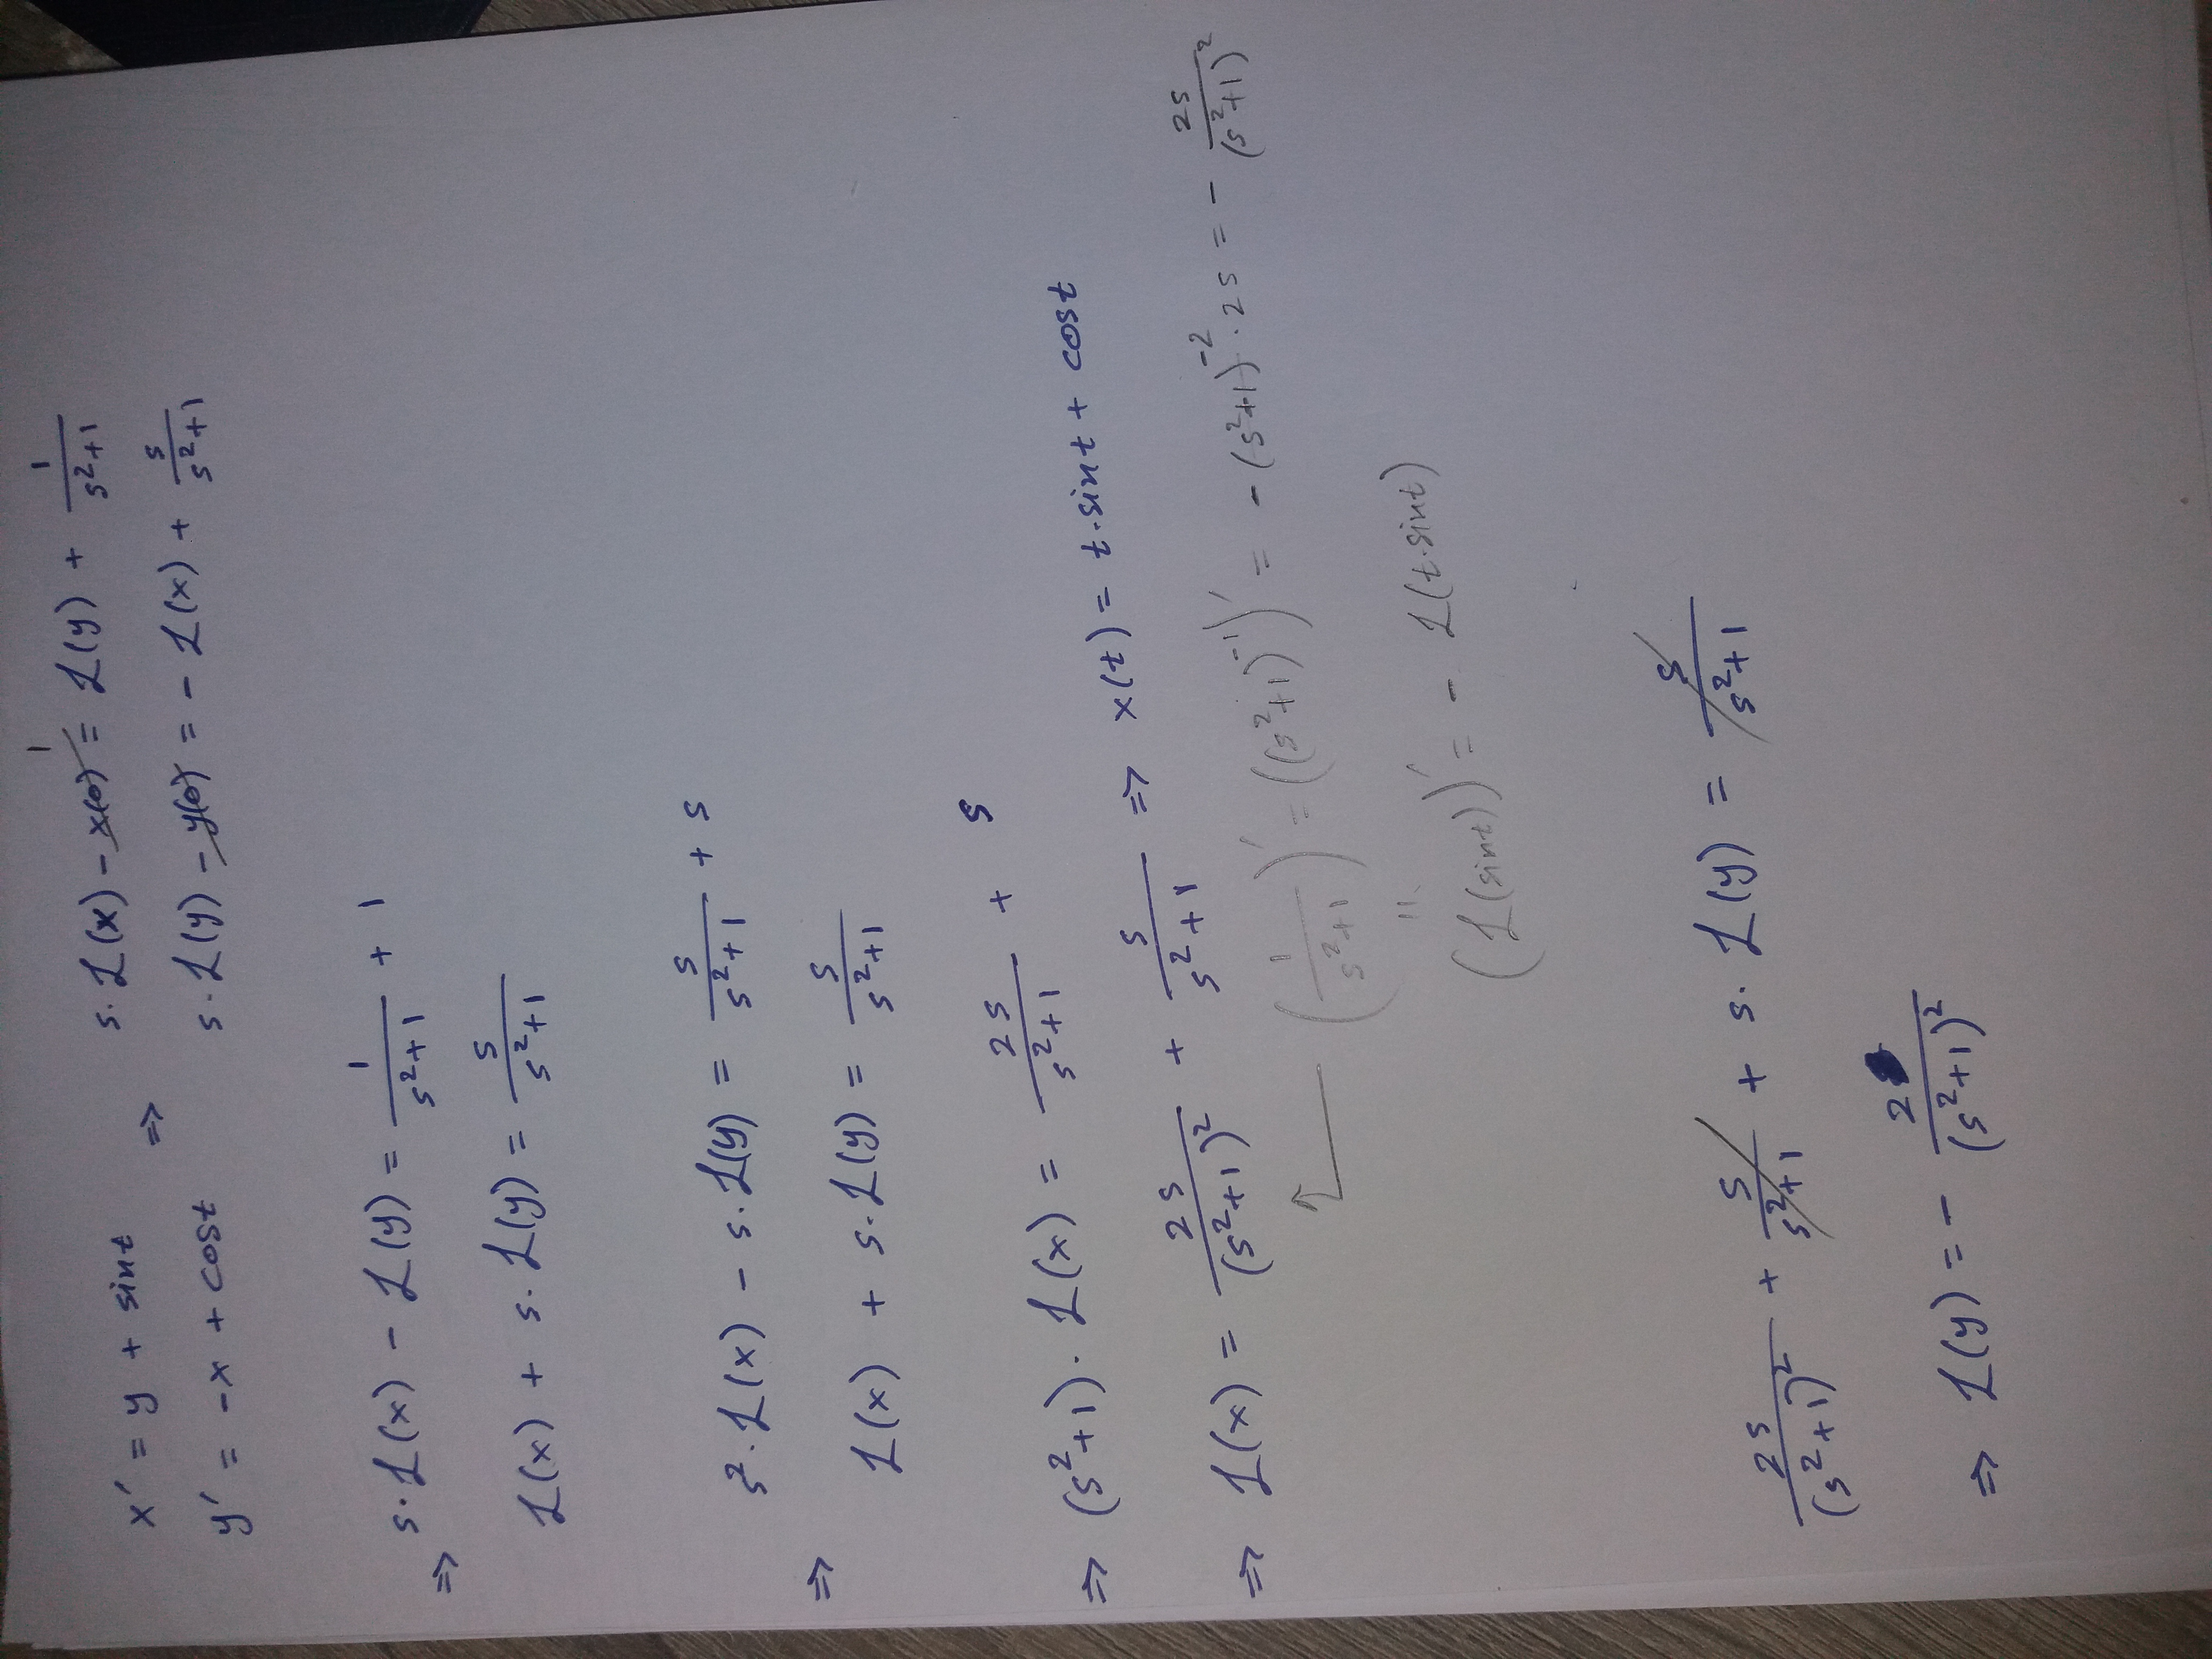 x' = y + sint ⇒ s·L(x) - x(0) = L(y) + 1/(s²+1)
1
y' = -x + cost s·L(y) - y(0) = - L(x) + s/(s²+1)
⇒ s·L(x) - L(y) = 1/(s²+1) + 1
L(x) + s·L(y) = s/(s²+1)
⇒ s²·L(x) - s·L(y) = s/(s²+1) + s
L(x) + s·L(y) = s/(s²+1)
⇒ (s²+1)·L(x) = 2s/(s²+1) + s
⇒ L(x) = 2s/(s²+1)² + s/(s²+1) ⇒ x(t) = t·sint + cost
(1/(s²+1))' = ((s²+1)⁻¹)' = - (s²+1)⁻²·2s = - 2s/(s²+1)²
"
(L(sint))' = - L(t·sint)
2s/(s²+1)² + s/(s²+1) + s·L(y) = s/(s²+1)
⇒ L(y) = - 2/(s²+1)²